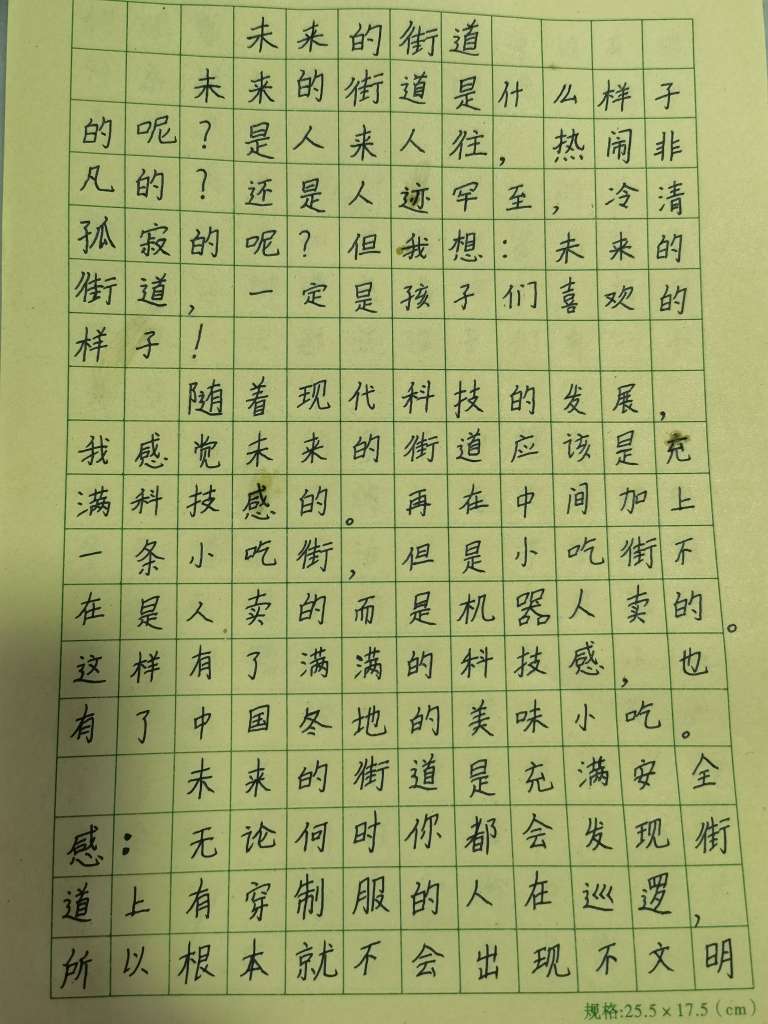 未来的街道
未来的街道是什么样子
的呢？是人来人往，热闹非
凡的？还是人迹罕至，冷清
孤寂的呢？但我想：未来的
街道，一定是孩子们喜欢的
样子！
随着现代科技的发展，
我感觉未来的街道应该是充
满科技感的。再在中间加上
一条小吃街，但是小吃街不
在是人卖的而是机器人卖的。
这样有了满满的科技感，也
有了中国冬地的美味小吃。
未来的街道是充满安全
感：无论何时你都会发现街
道上有穿制服的人在巡逻，
所以根本就不会出现不文明
规格:25.5×17.5（cm）